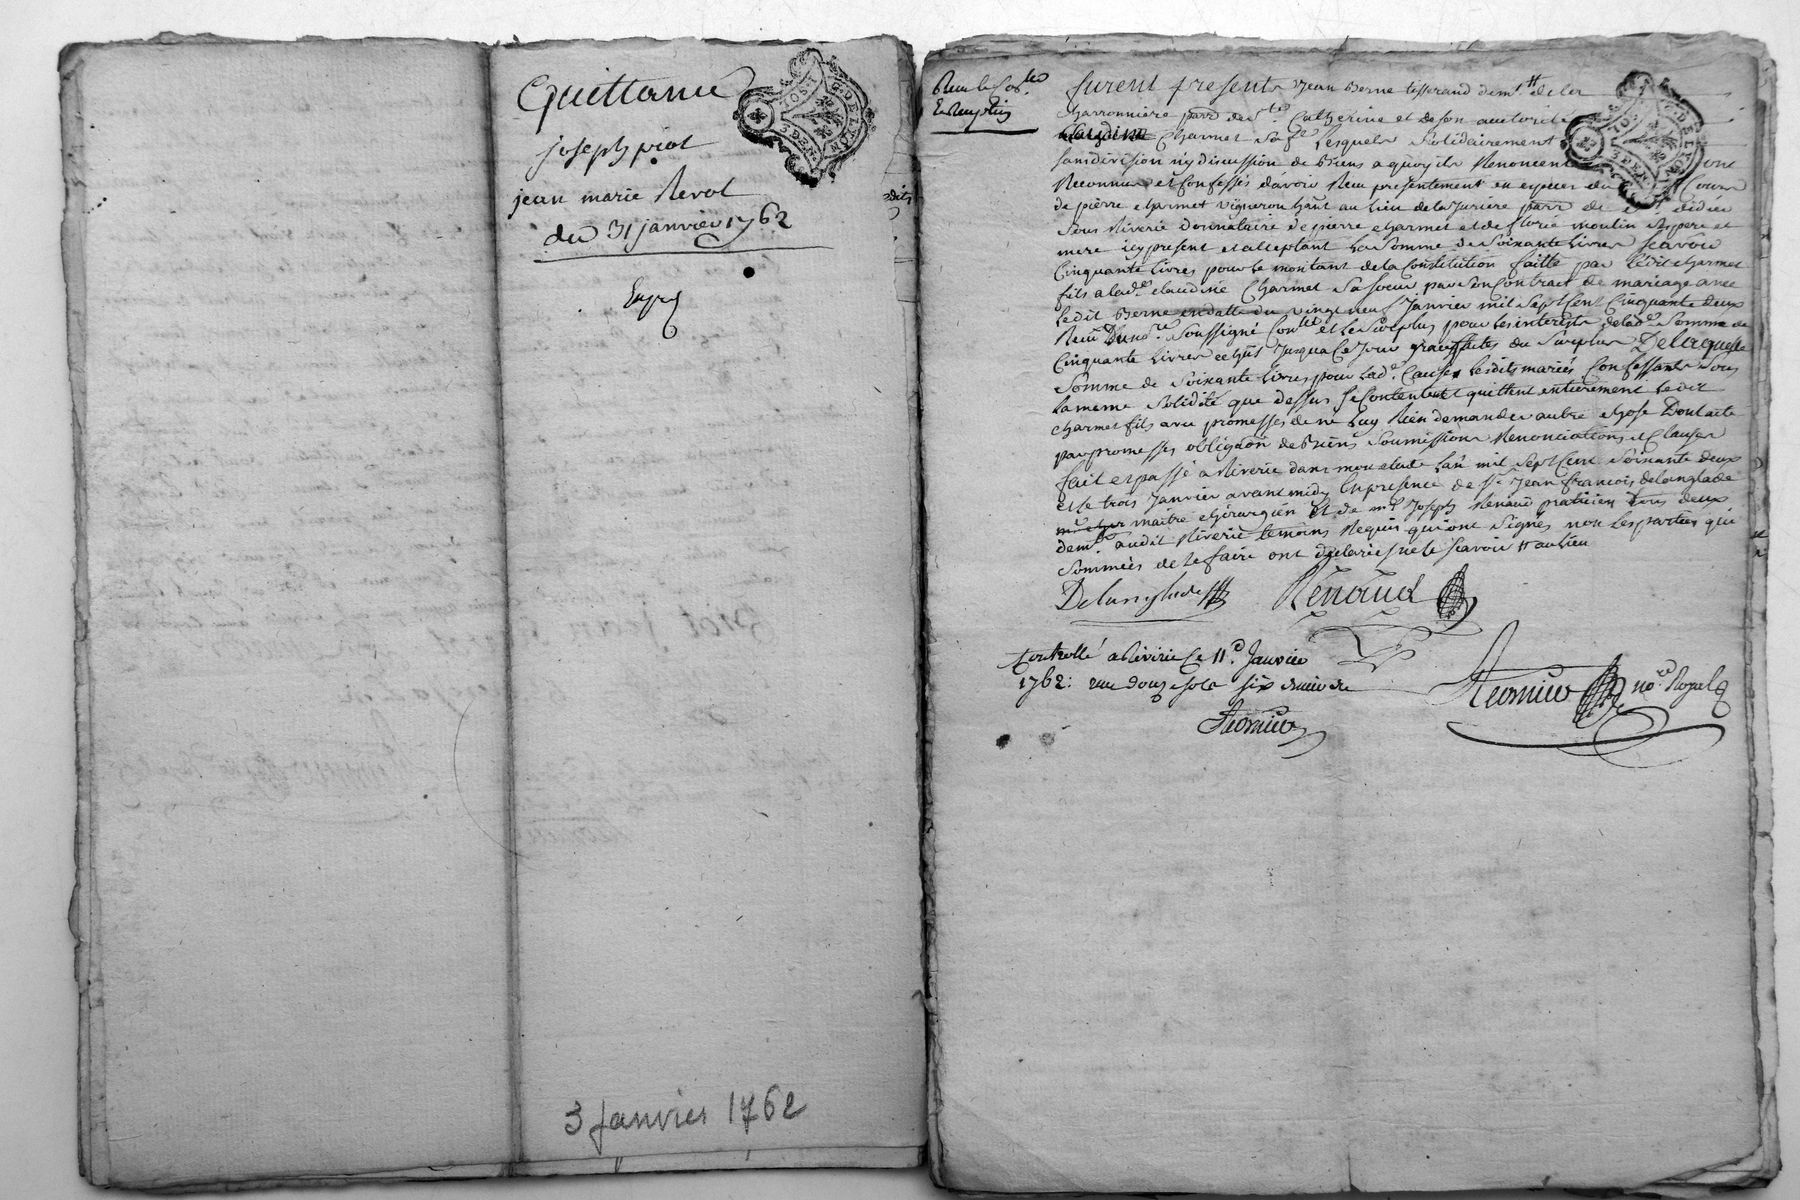 Quittance
joseph piot
jean marie Revol
du 31 janvier 1762
Expé
3 Janvier 1762
GDELYON
3 DEN.
furent presents Jean Berne tisserand dem.tt de la
Charronniere parr. de Ste. Catherine et de son autorité
Charmet sa fe. Lesquels solidairement
sans division ny discussion de biens a quoy ils Renoncent ont
Reconnus et Confessés davoir Reçu presentement en especes du Cours
de pierre charmet vigneron hânt au lieu de la Juriere parr. de st didier
sous Riverie donnataire de pierre charmet et de florie moulin ses pere et
mere icy present et acceptant La somme de soixante Livres scavoir
Cinquante Livres pour le montant de la Constitution faitte par ledit charmet
fils a lade. claudine Charmet sa soeur par son Contract de mariage avec
ledit Berne en datte du vingt neuf Janvier mil sept Cent Cinquante deux
Reçu Du nore. soussigné et le surplus pour les interests de lade. somme de
Cinquante Livres echûs Jusqua Ce Jour du surplus De laquelle
somme de soixante Livres pour lade. Cause lesdits mariés Confessants sous
la meme solidité que dessus se Contentent et quittent entierement ledit
charmet fils avec promesses de ne luy Rien demander autre chose Dont acte
par promesses obligaon de biens soumissions Renonciations et Clauses
fait et passé a Riverie dans mon etude Lan mil sept Cent soixante deux
et le trois Janvier avant midy En presence de sr. Jean francois delanglade
maitre chirurgien et de mr. Joseph Renaud praticien tous deux
demtt. audit Riverie temoins Requis qui ont signés non les parties qui
sommées de le faire ont declarés ne le scavoir
Delanglade Renaud
Controllé a Riverie Ce 11e. Janvier
1762: reçu douze sols six deniers
nore. Royal